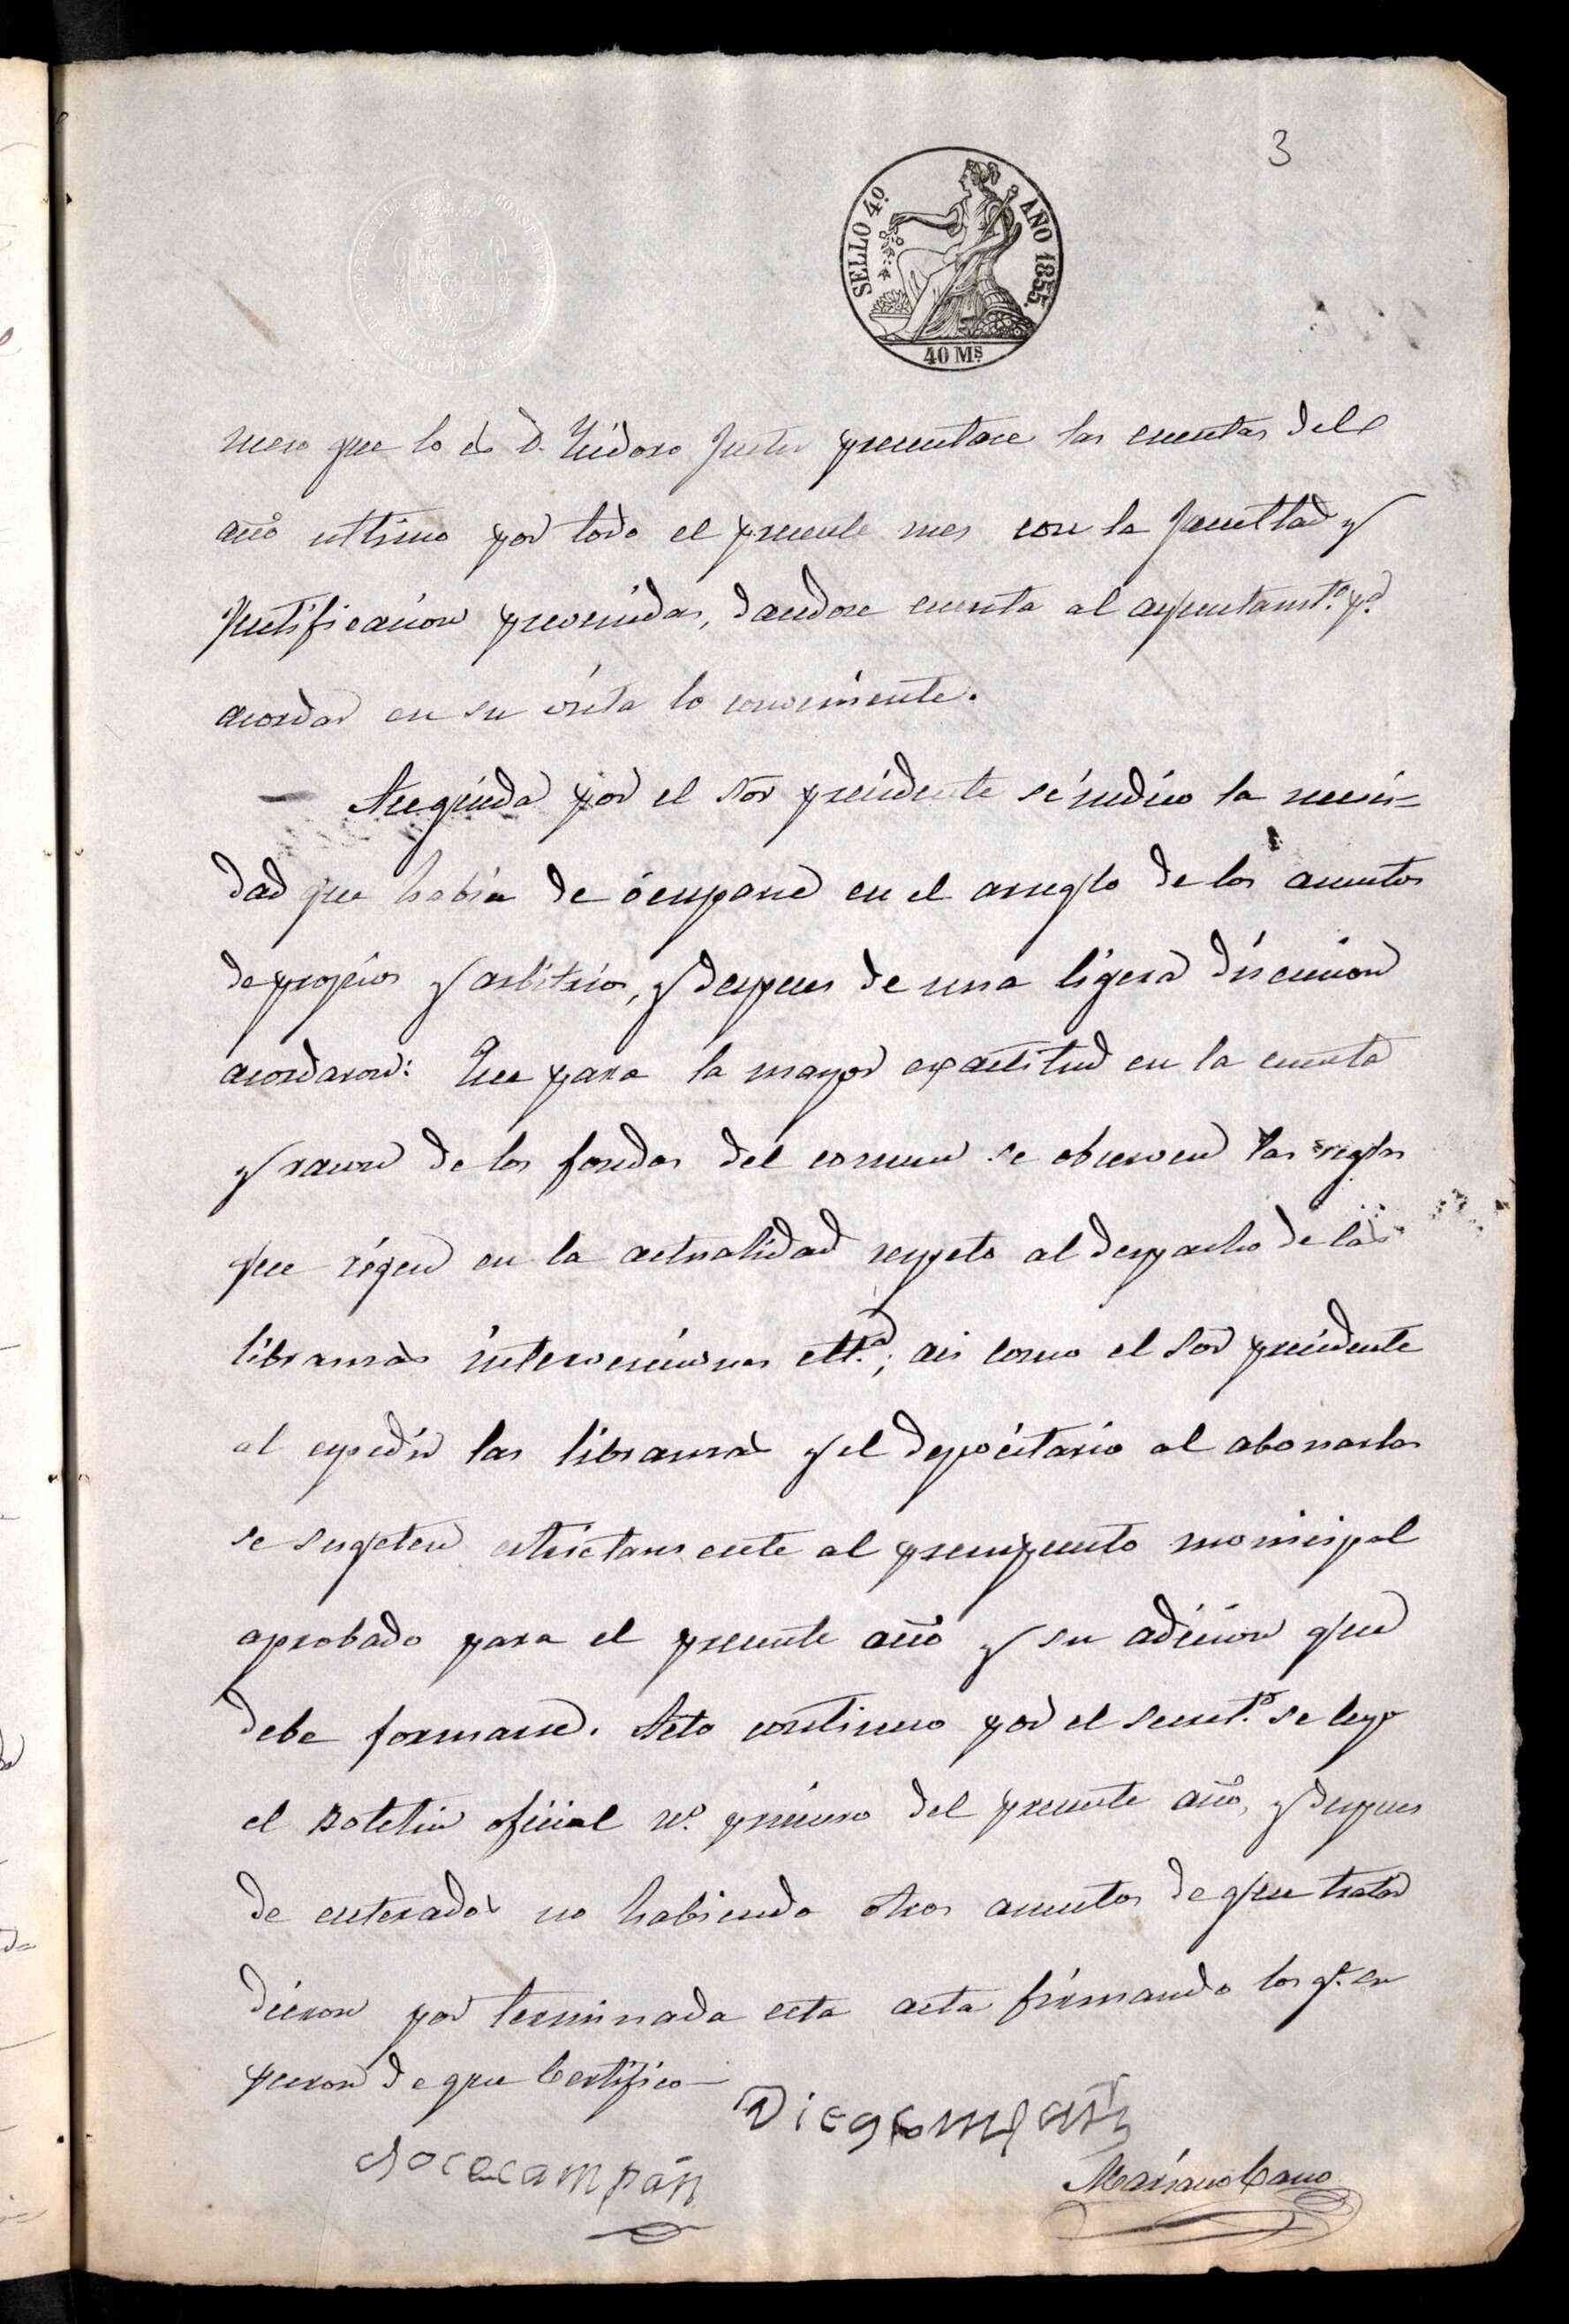 3
SELLO 4º AÑO 1855.
40 Ms
que lo es D. Ysidoro presentase las cuentas del
año ultimo por todo el presente mes con la y
justificacion prevenidas, dandose cuenta al ayuntamt.º p.ª
acordar en su vista lo conveniente.
Seguida por el Sor presidente se indico la necesi=
dad que habia de ocuparse en el arreglo de los asuntos
de propios y arbitrios, y despues de una ligera discusion
acordaron: Que para la mayor exactitud en la cuenta
y razon de los fondos del comun se observen las reglas
que rigen en la actualidad respeto al despacho de las
libranzas intervenciones ett.ª; asi como el Sor presidente
al espedir las libranzas y el depocitario al abonarlas
se sugeten estrictamente al presupuesto monicipal
aprobado para el presente año y su adicion que
debe formarse. Acto continuo por el secret.º se leyo
el Boletin oficial nº. primero del presente año, y despues
de enterados no habiendo otros asuntos de que tratar
dieron por terminada esta acta firmando los q.e su
pieron de que Certifico
Diego
Jose campón
Mariano Cano